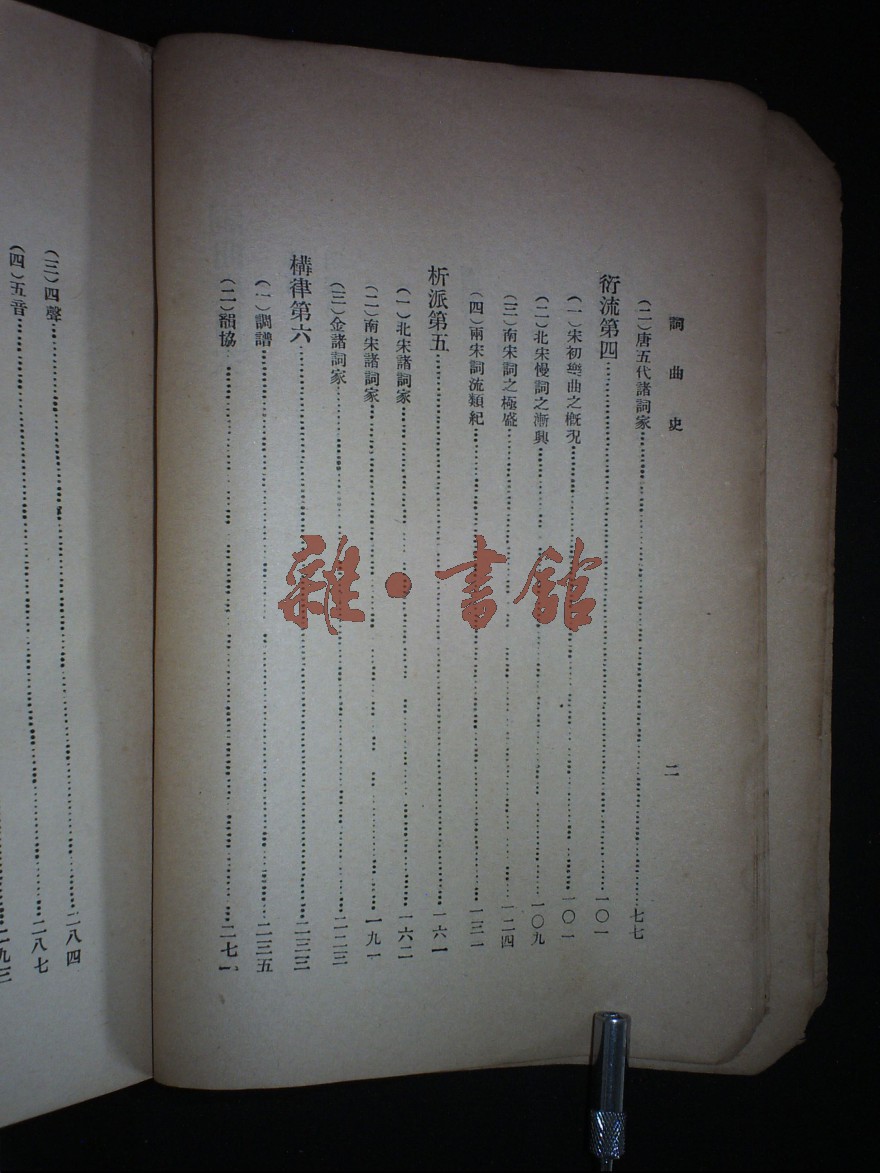 詞曲史
二
（二）唐五代諸詞家……七七
衍流第四……一〇一
（一）宋初樂曲之槪況……一〇一
（二）北宋慢詞之漸興……一〇九
（三）南宋詞之極盛……一二四
（四）兩宋詞流類紀……一三一
析派第五……一六一
（一）北宋諸詞家……一六二
（二）南宋諸詞家……一九一
（三）金諸詞家……二二三
構律第六……二三三
（一）調譜……二三五
（二）韻協……二七一
（三）四聲……二八四
（四）五音……二八七
二九三
雜·書館